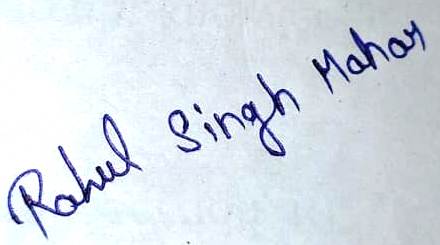 Rahul Singh Mahar